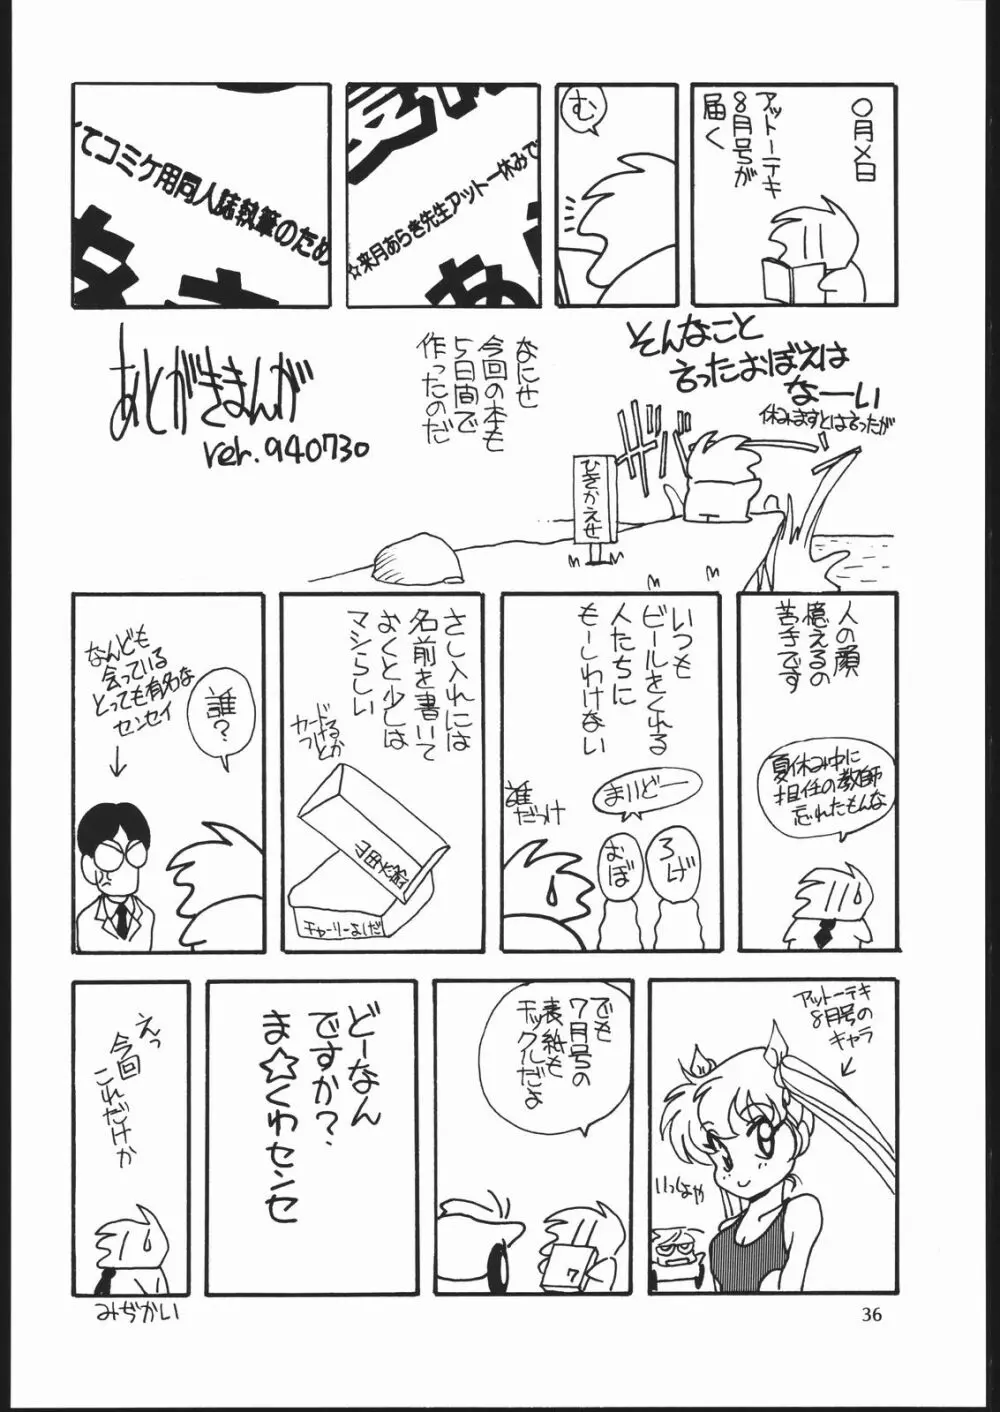 〇月×日
アットーテキ
8月号が
届く
む
☆来月あらき先生アットー休みで
てコミケ用同人誌執筆のため
そんなこと
言ったおぼえは
なーい
休みますとは言ったが
なにせ
今回の本も
5日間で
作ったのだ
ひきかえせ
あとがきまんが
ver.940730
人の顔
憶えるの
苦手です
夏休み中に
担任の教師
忘れたもんな
いつも
ビールをくれる
人たちに
もーしわけない
まいどー
ろげ
おぼ
誰
だっけ
さし入れには
名前を書いて
おくと少しは
マシらしい
カード
つけるとか
チャーリーよしだ
誰?
なんども
会っている
とっても有名な
センセイ
アットーテキ
8月号の
キャラ
いっしょや
でも
7月号の
表紙も
チックルだよ
7
どーなん
ですか?
ま☆くわセンセ
えっ
今回
これだけか
みぢかい
36